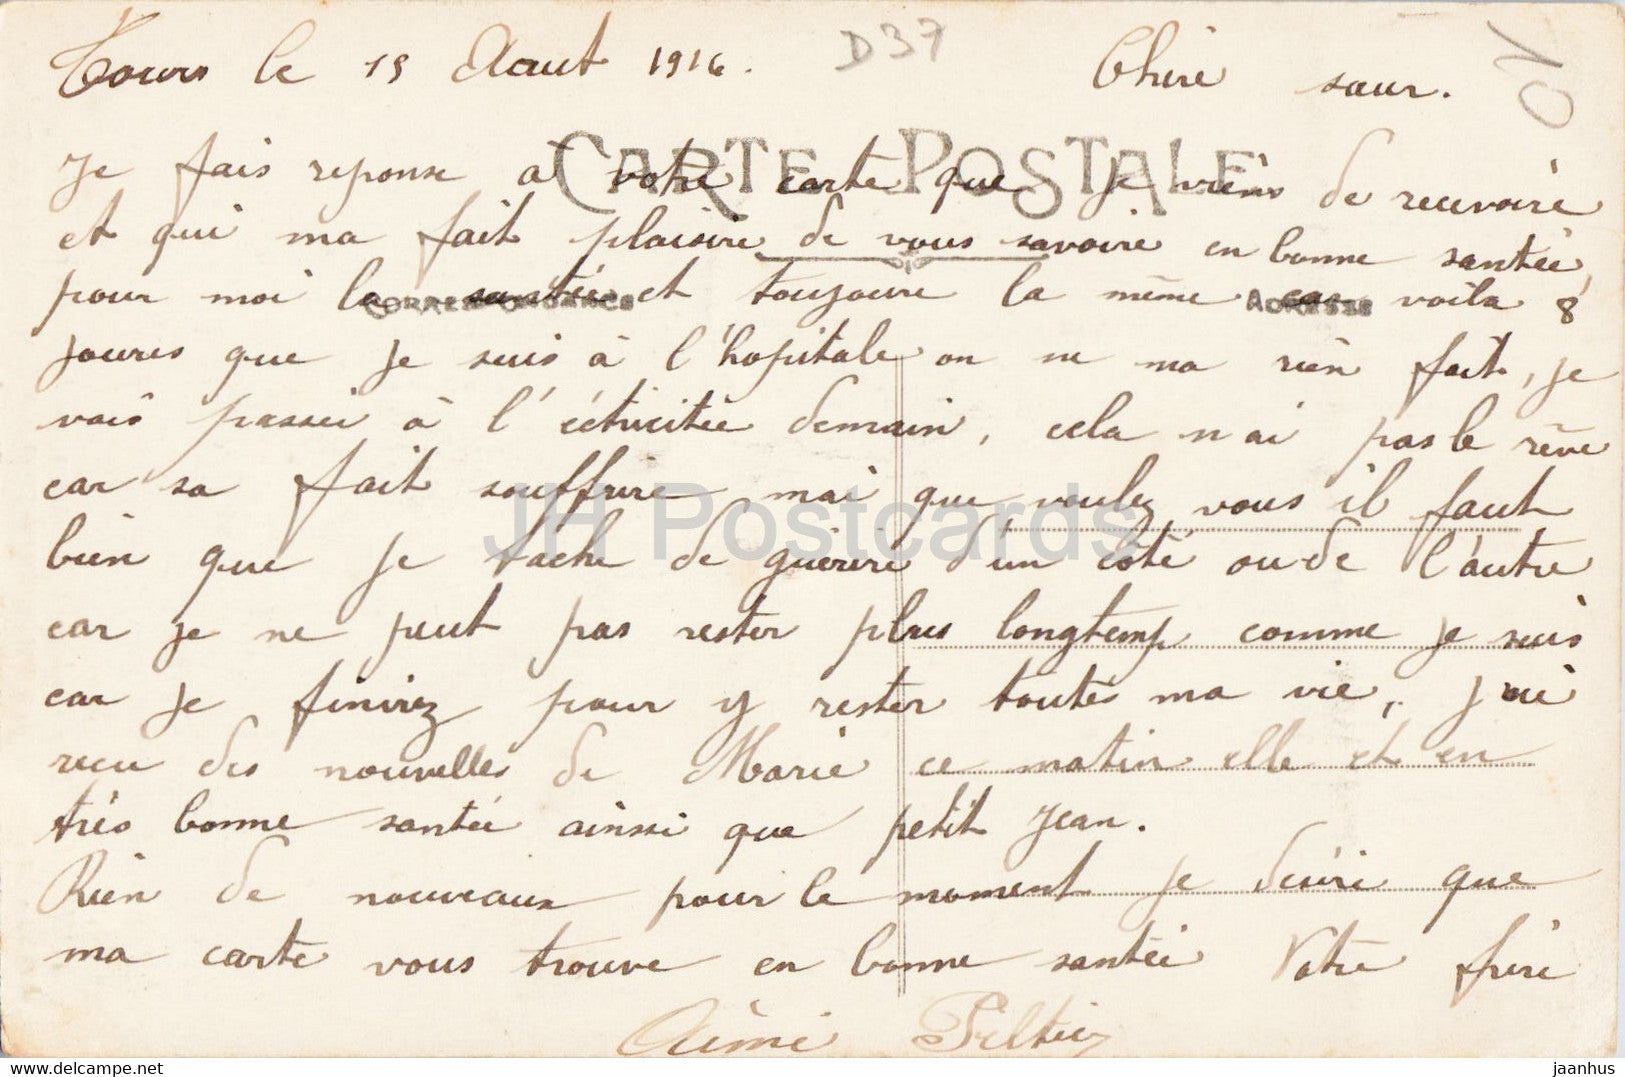 Tours le 19 Aout 1916. D37 Chère sœur. 01
CARTE POSTALE
Je fais reponse à votre carte que je viens de recevoire
et qui ma fait plaisire de vous savoire en bonne santée,
pour moi la santée et toujoure la même car voila 8
CORRESPONDANCE ADRESSE
joures que je suis à l'hopitale on ne ma rien fait, je
vais passer à l'éctricitée demain, cela n'ai pas le rêve
car sa fait souffrire mai que voulez vous il faut
JH Postcards
bien que je tache de guérire d'un côté ou de l'autre
car je ne peut pas rester plus longtemp comme je suis
car je finirez pour y rester toutes ma vie, j'ai
reçu des nouvelles de Marie ce matin elle et en
très bonne santée ainssi que petit Jean.
Rien de nouveaux pour le moment je désire que
ma carte vous trouve en bonne santée Votre frère
Aimé Peltier
HipPostcard.com jaanhus